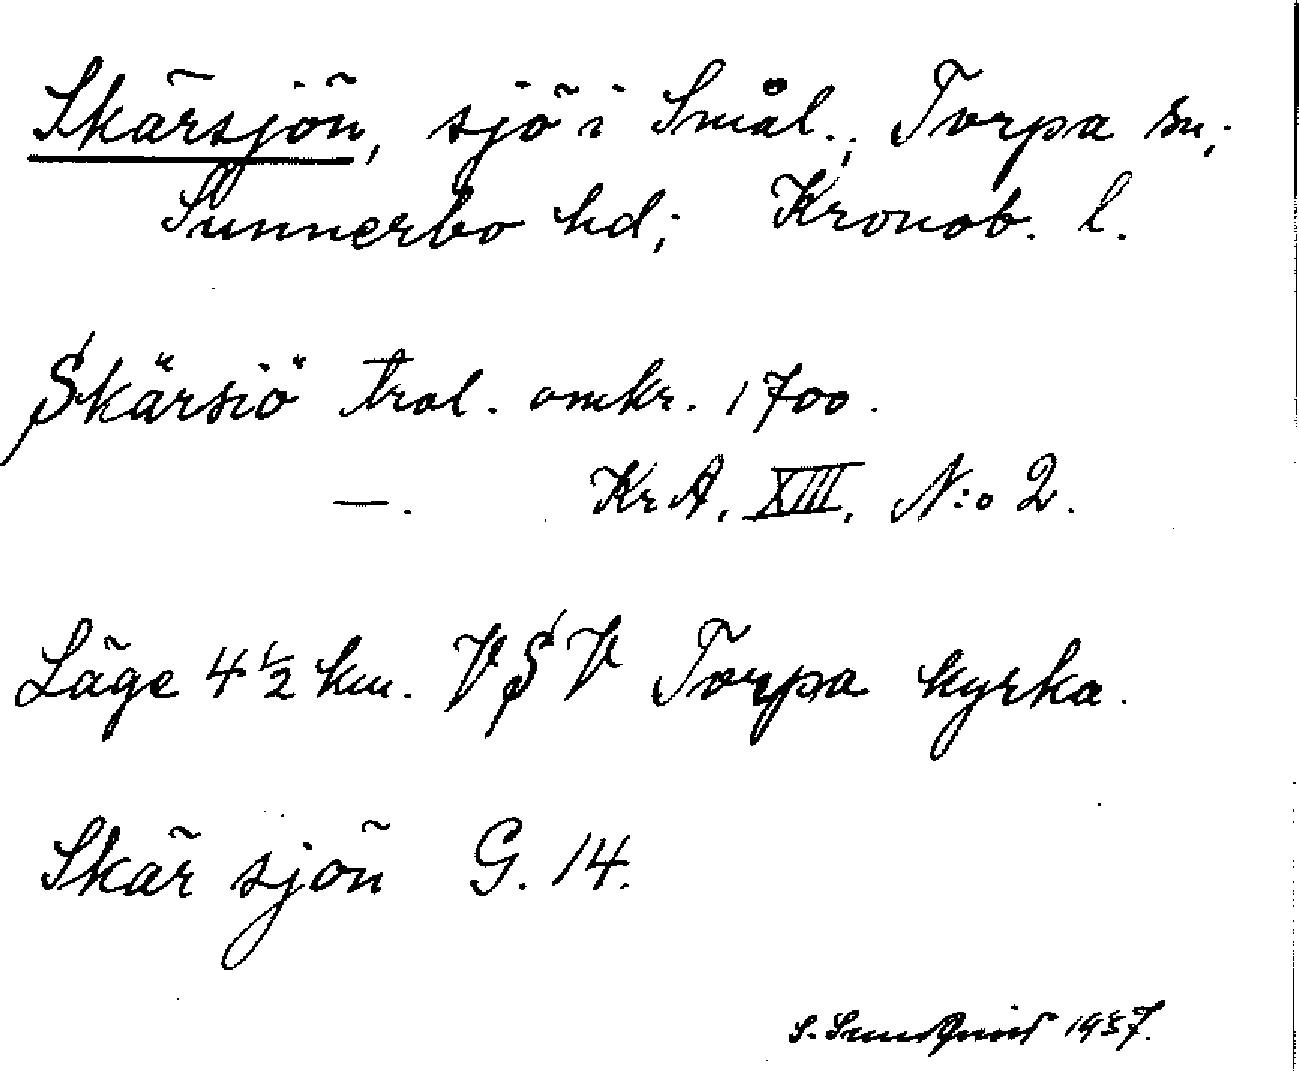 Skärsjön, sjö i Smål., Torpa sn,.
Sunnerbo hd; Kronob. l.
Skärsiö trol. omkr. 1700.
—. KrA, XIII, N:o 2.
Läge 4 1/2 km. VSV Torpa kyrka.
Skär sjön G. 14.
S. Sundqvist 1937.